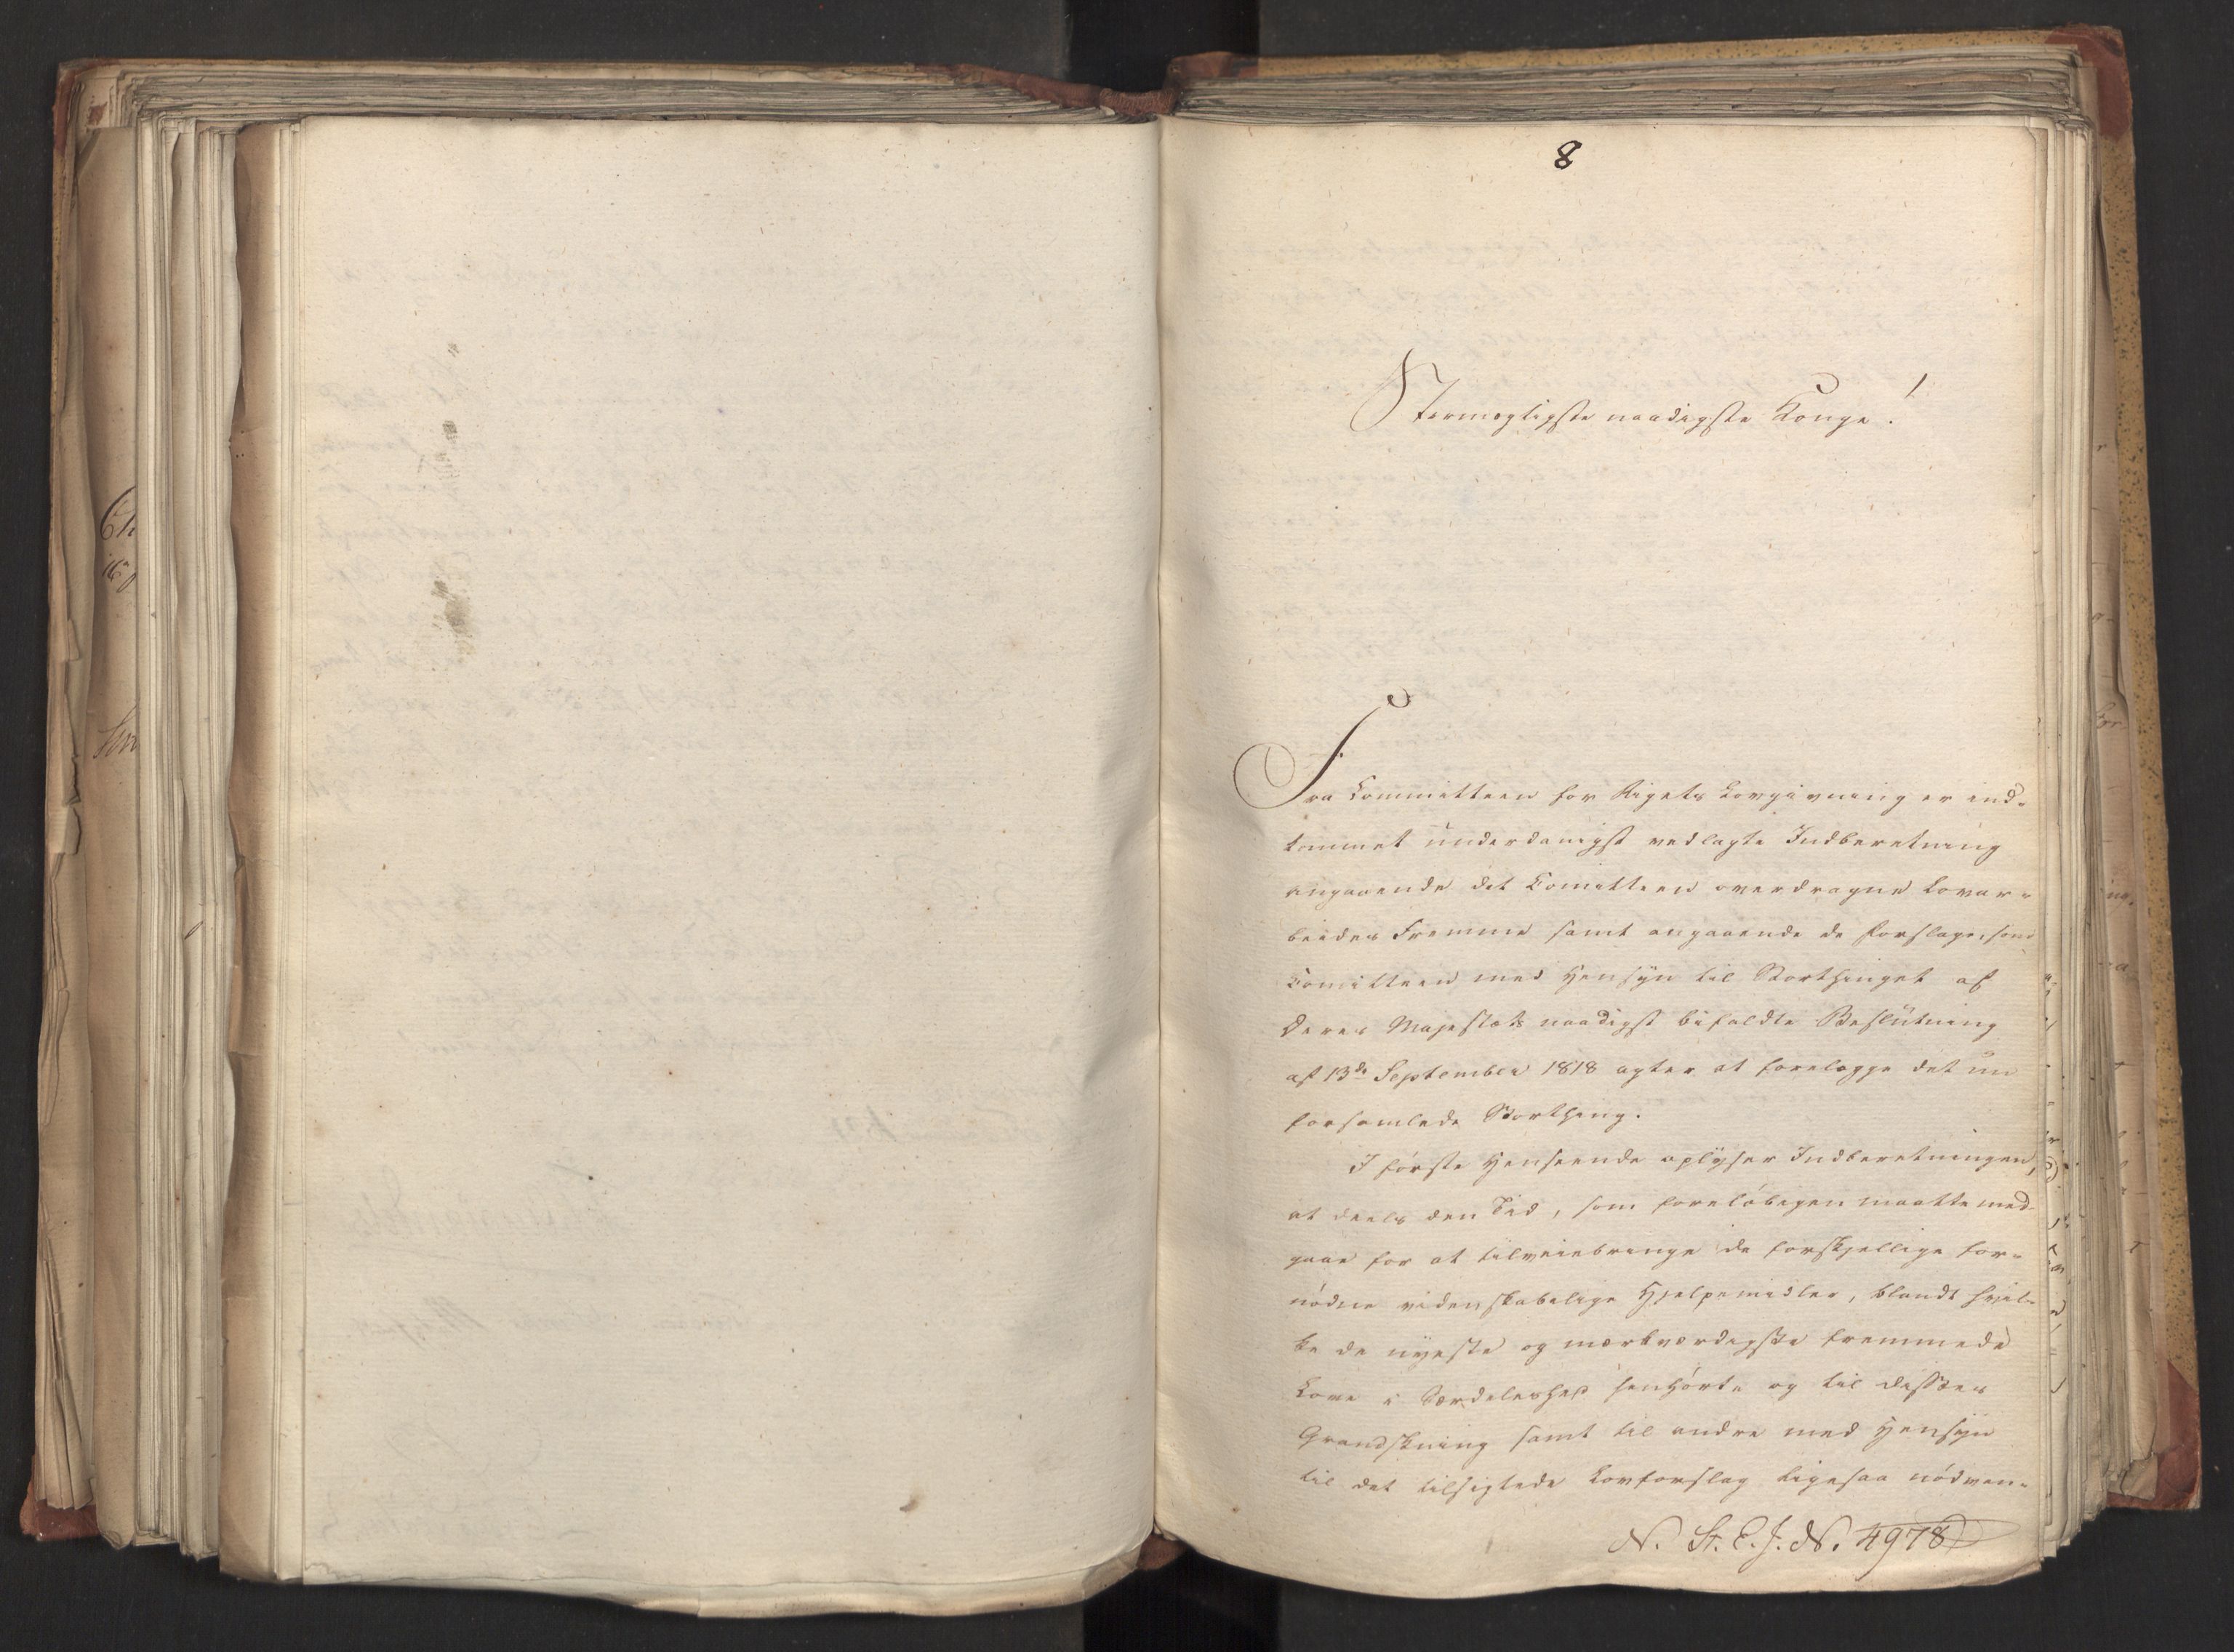 8
Stormægtigste naadigste Konge!
Fra Committeen for Rigets Lovgivning er ind-
kommet underdanigst vedlagte Indberetning
angaaende det Comitteen overdragne Lovar-
beides Fremme samt angaaende de Forslage, som
Comitteen med Hensyn til Storthinget af
Deres Majestæts naadigst bifaldte Beslutning
af 13de September 1818 agter at forelægge det nu
forsamlede Storthing.
I første Henseende oplyser Indberetningen,
at deels den Tid, som foreløbigen maatte med-
gaae for at tilveiebringe de forskjellige for-
nødne videnskabelige Hjelpemidler, blandt hvil-
ke de nyeste og mærkværdigste fremmede
Love i Særdeleshed henhørte og til disses
Grandskning samt til andre med Hensyn
til det tilsigtede Lovforslag ligesaa nødven-
N. St. E. J. N. 4978